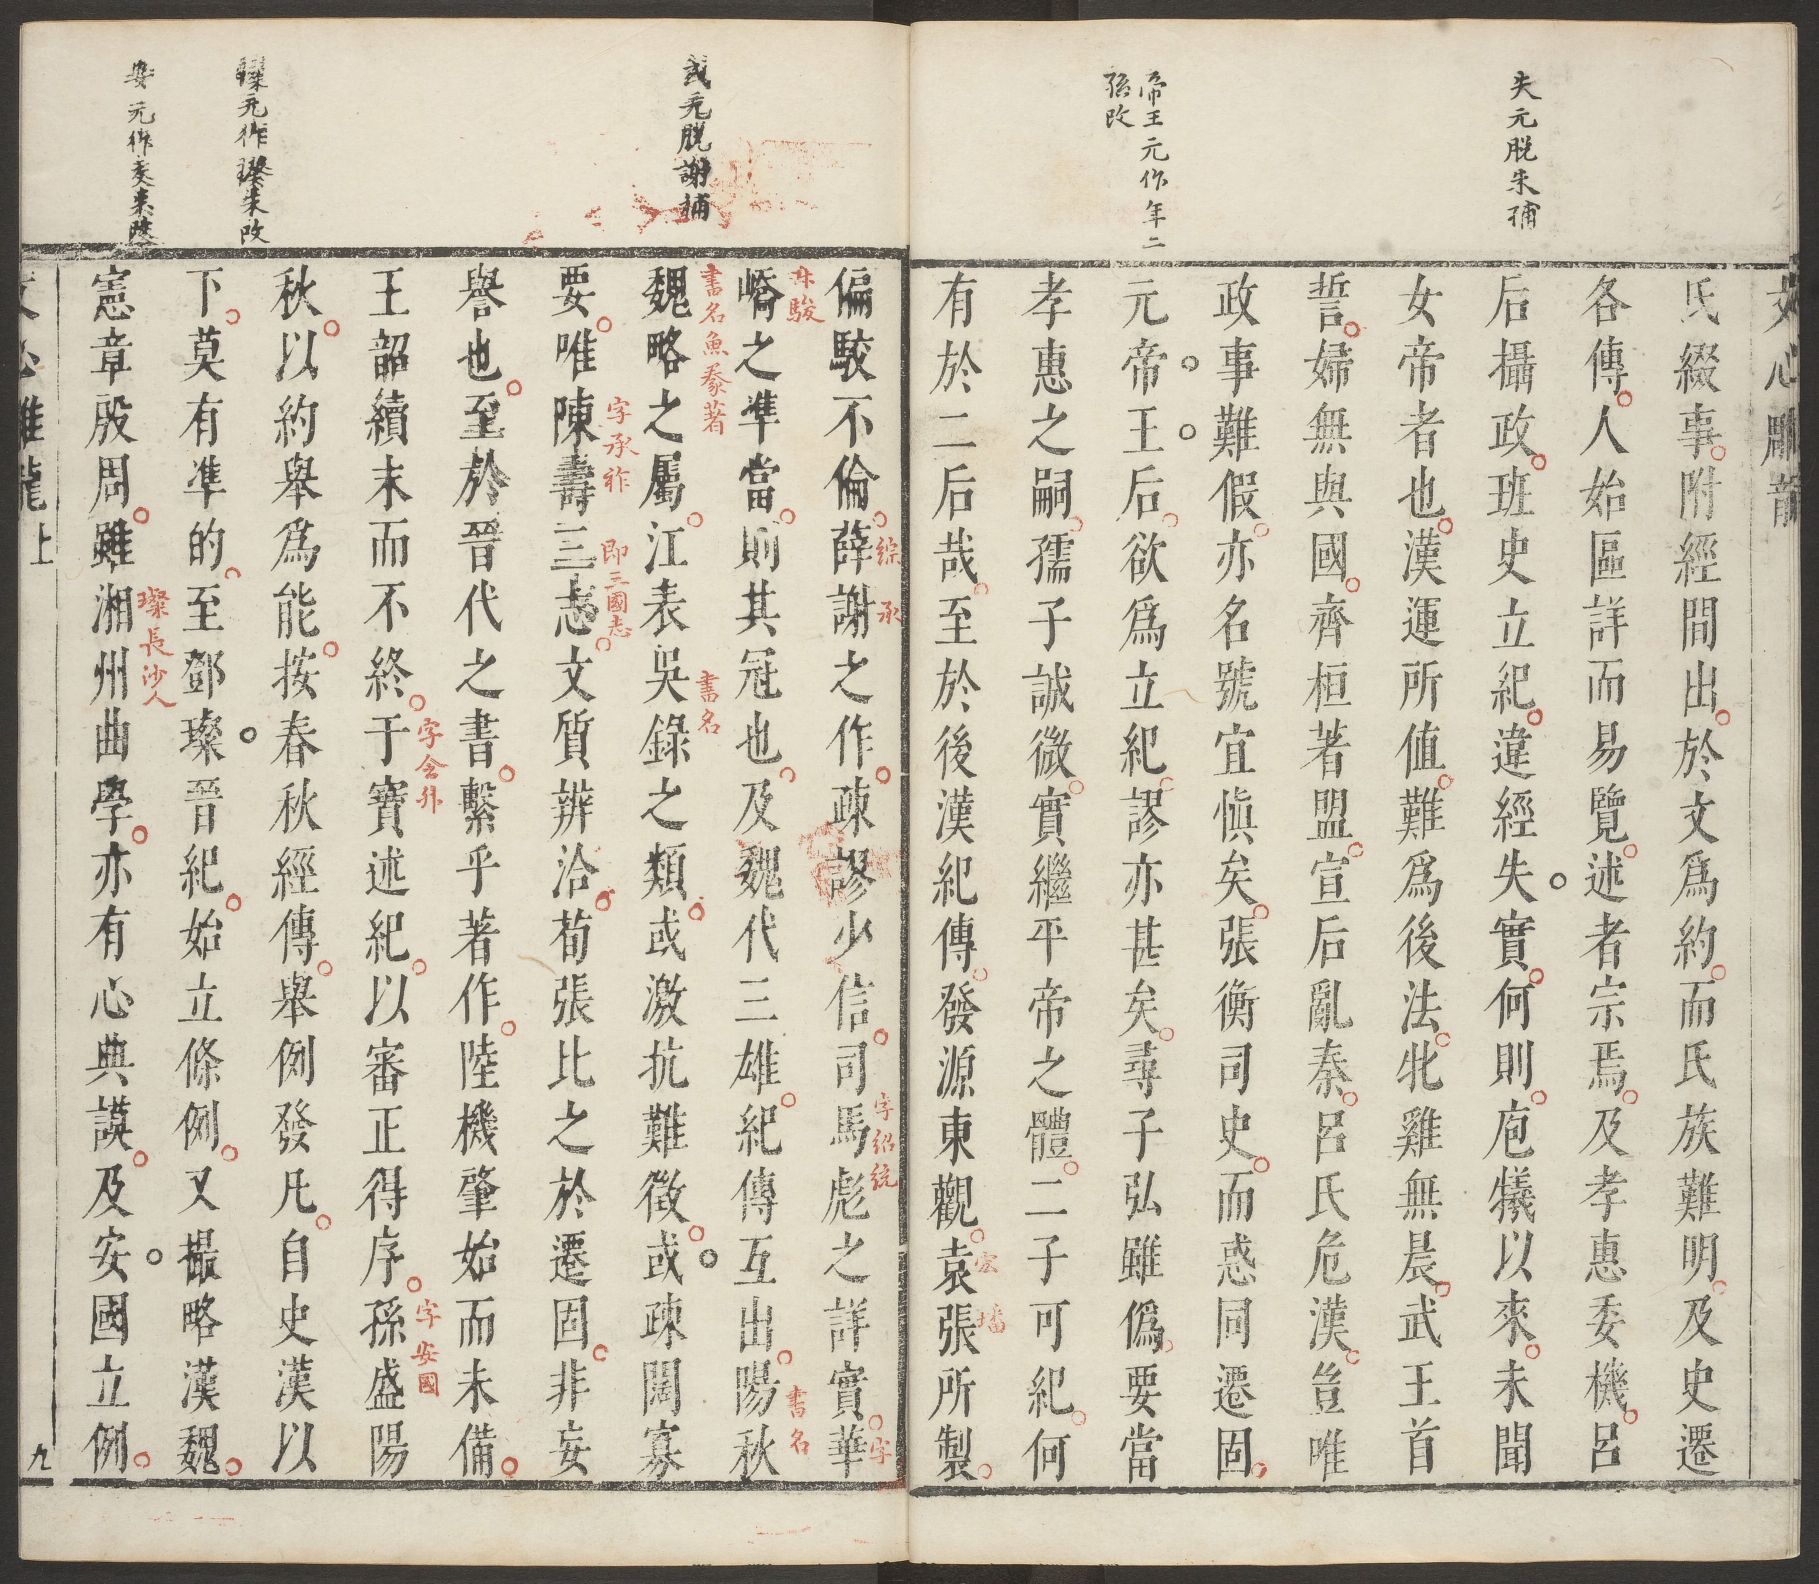 失元脫朱補
帝王元作年二
孫改
文心雕龍
氏綴事附經間出於文爲約而氏族難明及史遷
各傳人始區詳而易覽述者宗焉及孝惠委機呂
后攝政班史立紀違經失實何則庖犧以來未聞
女帝者也漢運所值難爲後法牝雞無晨武王首
誓婦無與國齊桓著盟宣后亂秦呂氏危漢豈唯
政事難假亦名號宜慎矣張衡司史而惑同遷固
元帝王后欲爲立紀謬亦甚矣尋子弘雖僞要當
孝惠之嗣孺子誠微實繼平帝之體二子可紀何
有於二后哉至於後漢紀傳發源東觀袁張所製
宏
璠
或元脫謝補
璨元作璨朱改
安元作交朱改
偏駮不倫薛謝之作疎謬少信司馬彪之詳實華
綜
承
字紹統
字
嶠之準當則其冠也及魏代三雄紀傳互出陽秋
叔駿
書名
魏略之屬江表吳錄之類或激抗難徵或疎闊寡
書名魚豢著
書名
要唯陳壽三志文質辨洽荀張比之於遷固非妄
字承祚
即三國志
譽也至於晉代之書繫乎著作陸機肇始而未備
王韶續末而不終干寶述紀以審正得序孫盛陽
字令升
字安國
秋以約舉爲能按春秋經傳舉例發凡自史漢以
下莫有準的至鄧璨晉紀始立條例又撮略漢魏
憲章殷周雖湘州曲學亦有心典謨及安國立例
璨長沙人
文心雕龍上
九